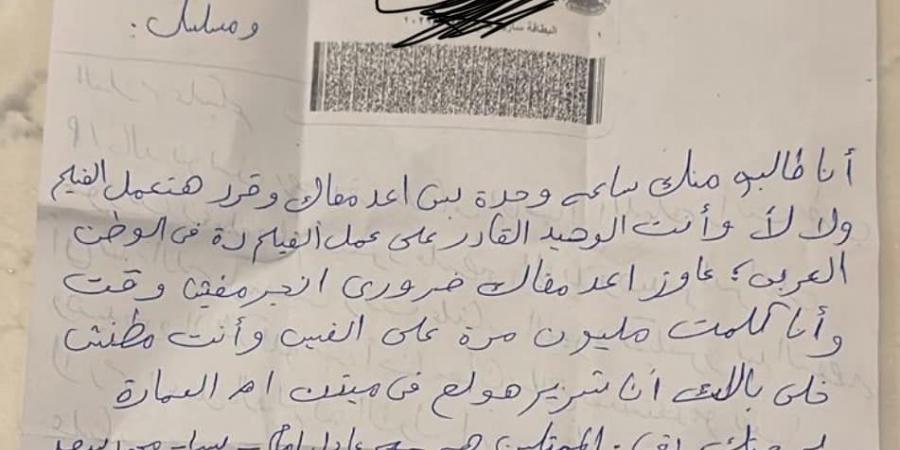 ومسلسل .
البطاقة سارية
أنا طالبو منك ساعه وحدة بس اعد معاك وقرر هتعمل الفيلم
ولا لأ وأنت الوحيد القادر على عمل الفيلم دة فى الوطن
العربى ؛ عاوز اعد معاك ضرورى انجر مفيش وقت
وأنا كلمت مليون مرة على الفيس وأنت مطنش
خلى بالك أنا شريز هولع فى ميتن ام العمارة